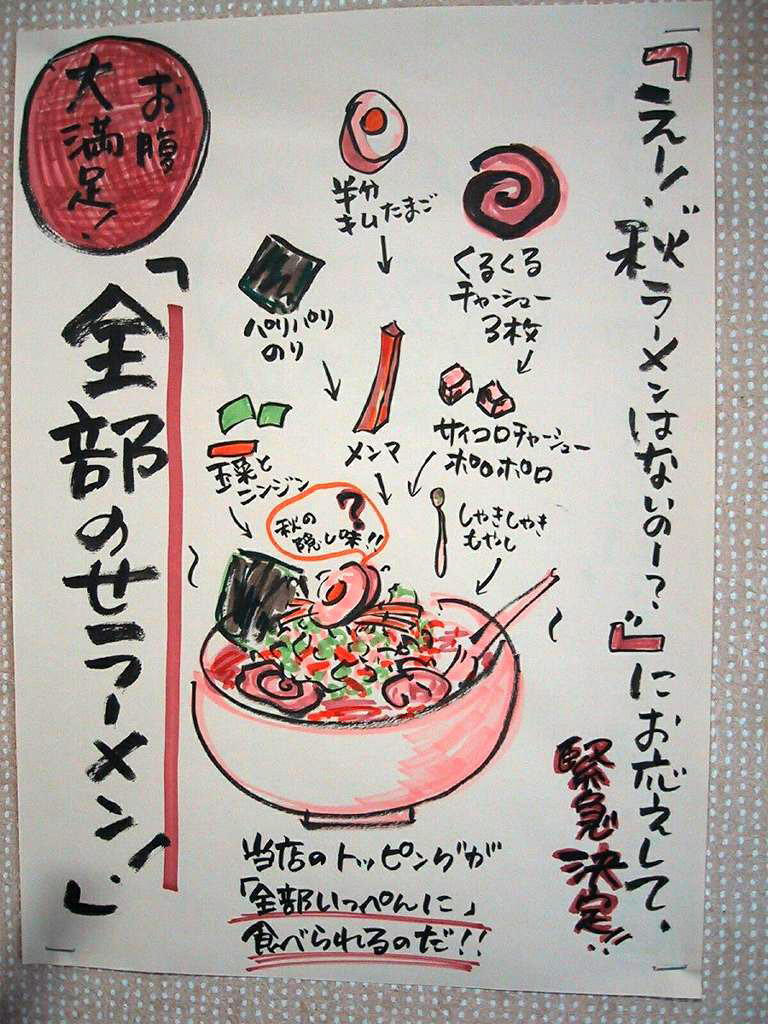 『えー！秋ラーメンはないのー？』にお応えして、
緊急決定!!
お腹
大満足！
「全部のせラーメン！」
半分
キムたまご
くるくる
チャーシュー
3枚
パリパリ
のり
メンマ
サイコロチャーシュー
ポロポロ
玉菜と
ニンジン
秋の
隠し味!!
？
しゃきしゃき
もやし
当店のトッピングが
「全部いっぺんに」
食べられるのだ!!